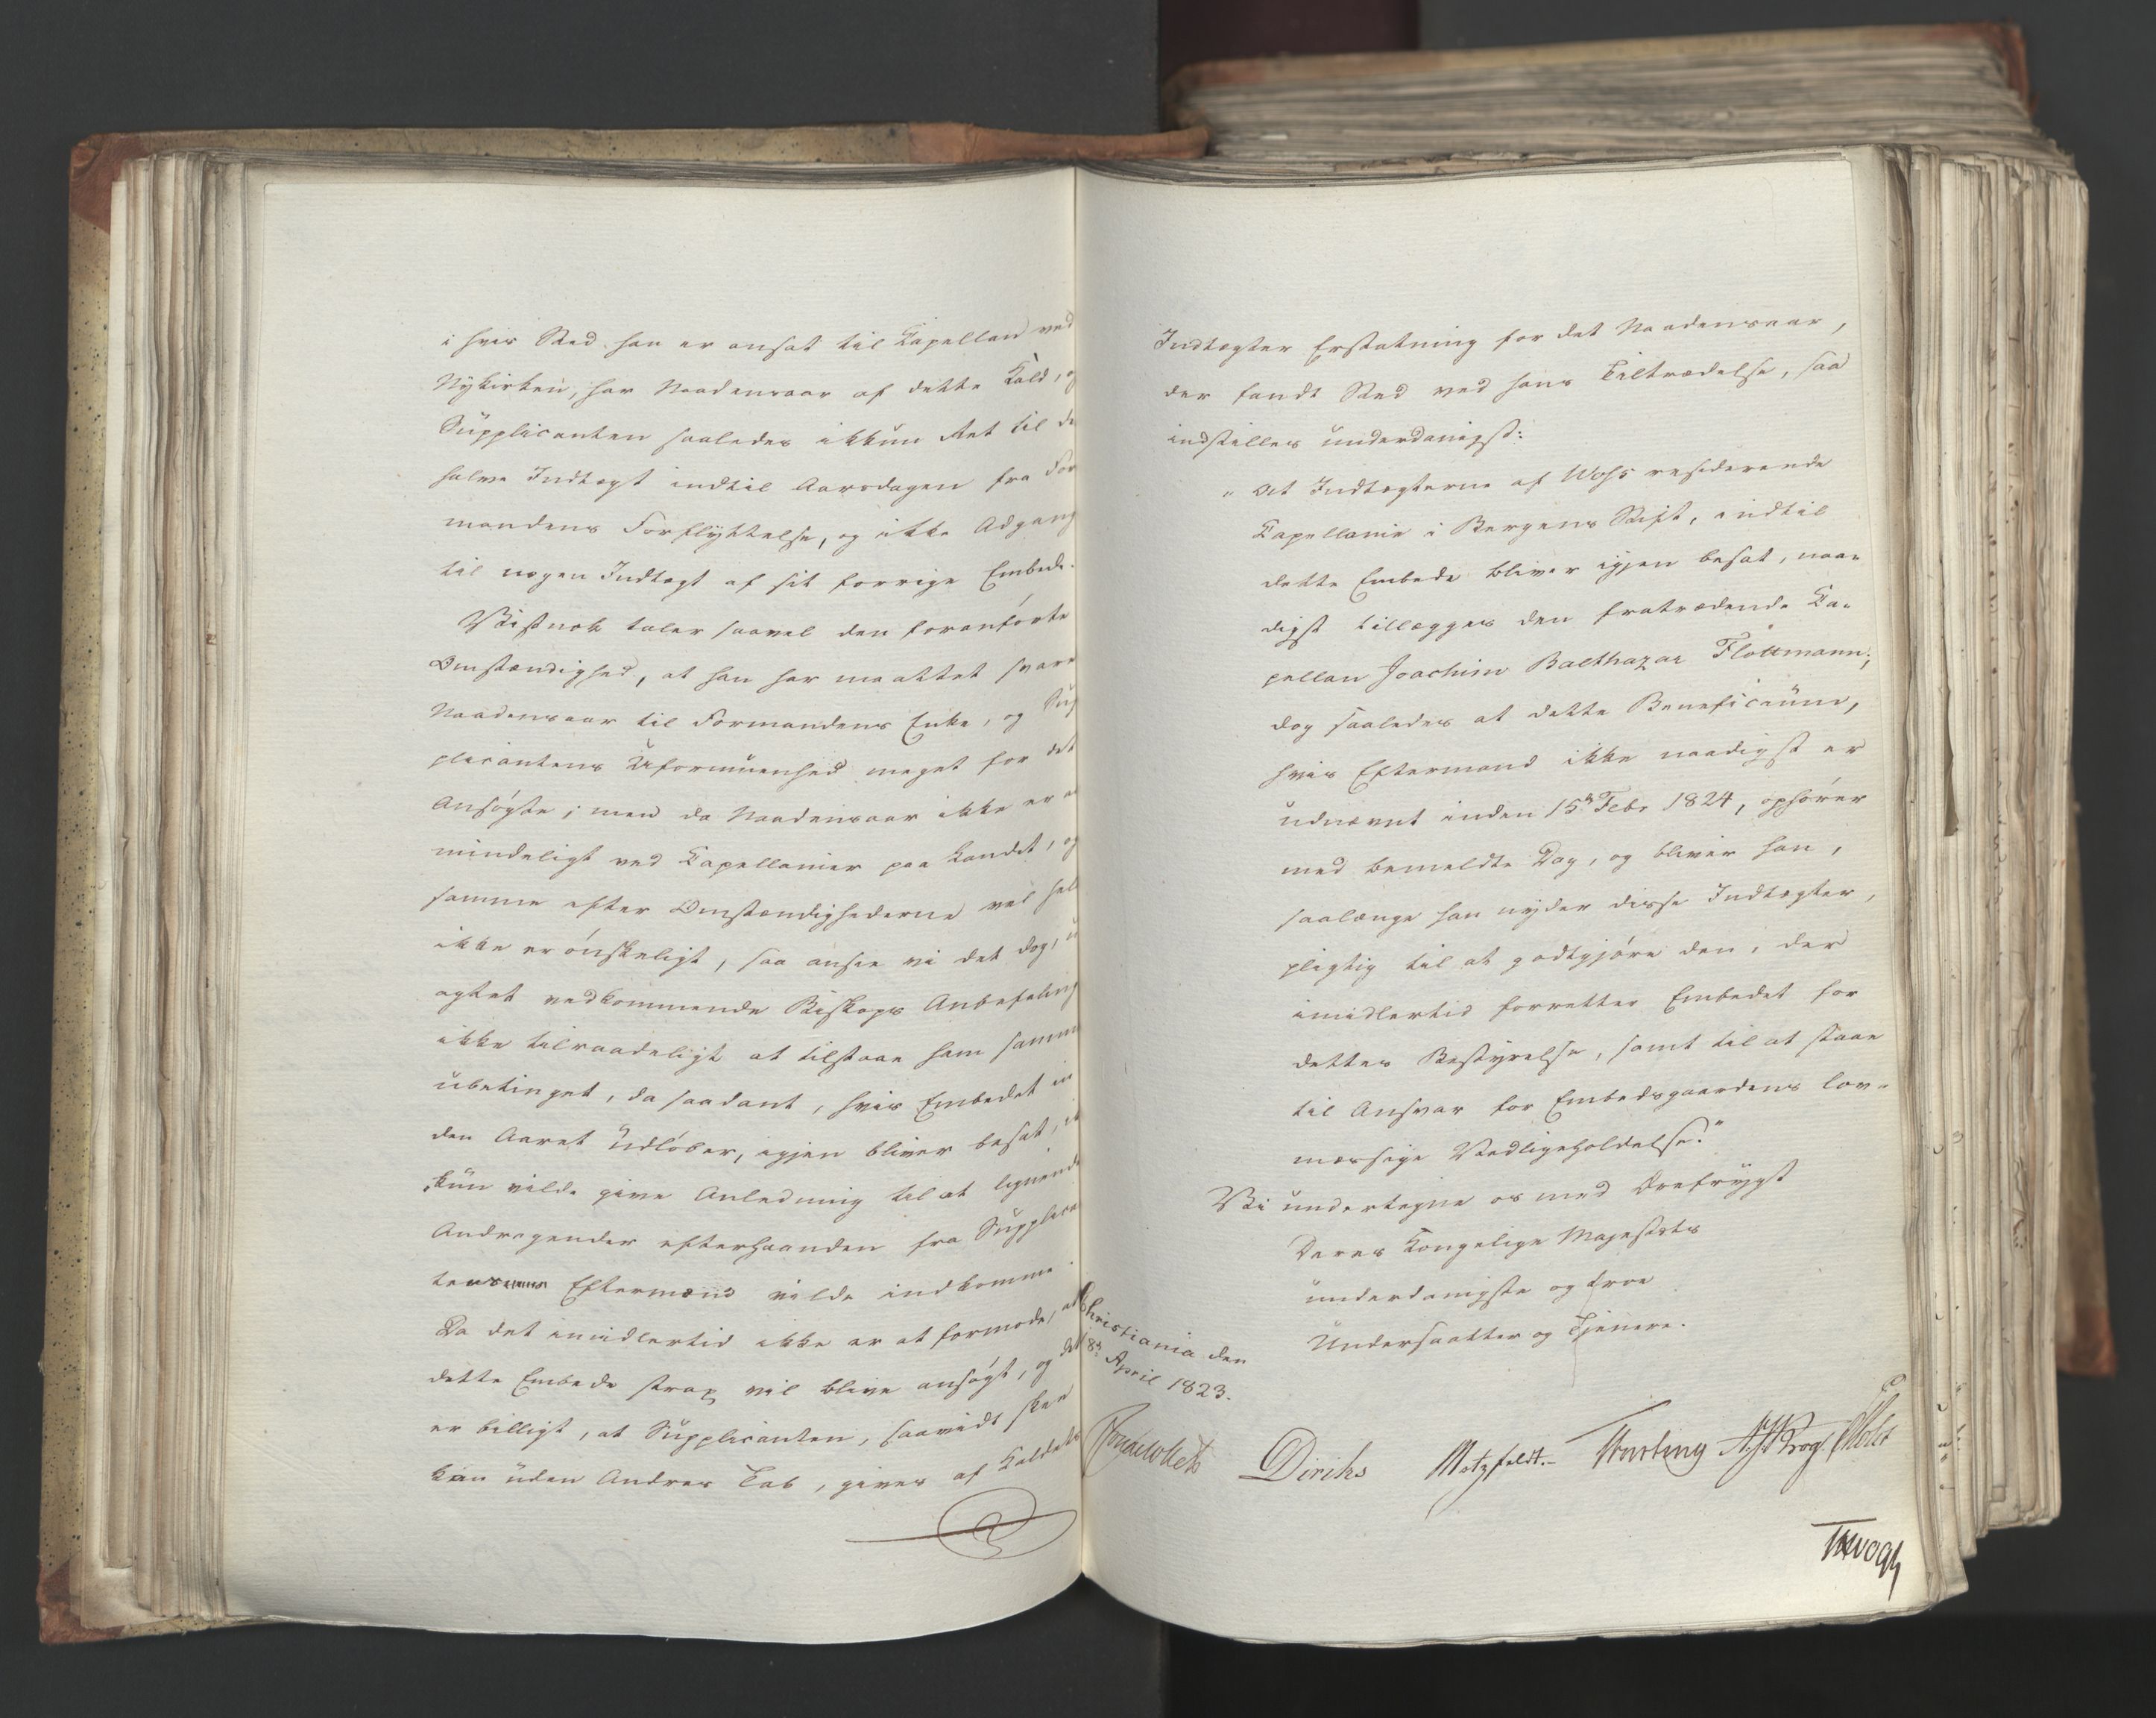 i hvis Sted han er ansat til Capellan ved
Nykirken, har Naadensaar af dette Kald, og
Supplicanten saaledes ikkun Ret til de
halve Indtægt indtil Aarsdagen fra For
mandens Forflyttelse, og ikke Adgang
til nogen Indtægt af sit forrige Embede.
Vistnok taler saavel den foranførte
Omstændighed, at han har maattet svare
Naadensaar til Formandens Enke, og Sup
plicantens Uformuenhed meget for det
Ansøgte; men da Naadensaar ikke er al
mindeligt ved Capellanier paa Landet, og
samme efter Omstændighederne vel hel
ikke er ønskeligt, saa ansee vi det dog, u
agtet vedkommende Biskops Anbefaling
ikke tilraadeligt at tilstaae ham samme
ubetinget, da saadant, hvis Embedet in
den Aaret Udløber, igjen bliver besat,
kun vilde give Anledning til at lignende
Andragender efterhaanden fra Supplican
tens Eftermænd vilde indkomme.
Da det imidlertid ikke er at formode, at
dette Embede strax vil blive ansøgt, og det
er billigt, at Supplicanten, saavidt skee
kan uden Andres Tab, gives af Kaldets
Indtægter Erstatning for det Naadensaar,
der fandt Sted ved hans Tiltrædelse, saa
indstilles underdanigst:
"At Indtægterne af Woss residerende
Capellanie i Bergens Stift, indtil
dette Embede bliver igjen besat, naa-
digst tillægges den fratrædende Ca-
pellan Joachim Balthazar Flottmann;
dog saaledes at dette Beneficium,
hvis Eftermand ikke naadigst er
udnævnt inden 15de Febr 1824, ophører
med bemeldte Dag, og bliver han,
saalænge han nyder disse Indtægter,
pligtig til at godtgjøre den, der
imidlertid forretter Embedet for
dettes Bestyrelse, samt til at staae
til Ansvar for Embedsgaardens lov-
mæssige Vedligeholdelse."
Vi undertegne os med Ærefrygt
Deres Kongelige Majestæts
underdanigste og troe
Undersaatter og Tjenere.
Christiania den
8de April 1823.
Diriks Motzfeldt.- Krog.